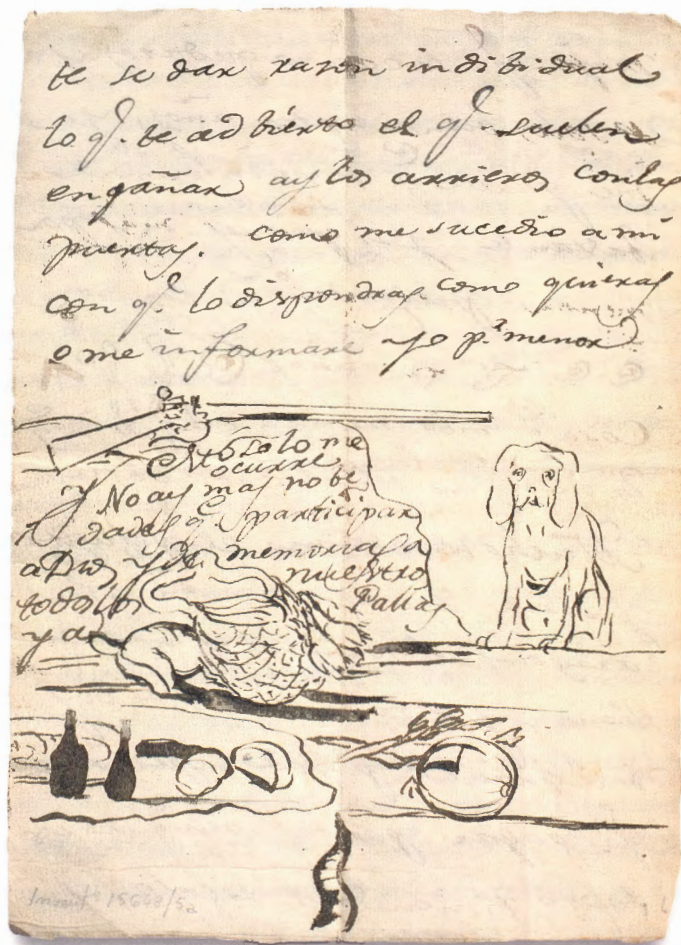 te se dar rason indibidual
lo q.e te adbierto el q.e suelen
engañar ay los arrieros con las
puertas. como me sucedio a mi
con q.e lo dispondras como quieras
o me informare yo p.r menor
Esto solo me
ocurre
y No ay mas nobe
dades q.e participar
a Dios y de memorias a
todos los nuestro
y a Pallas